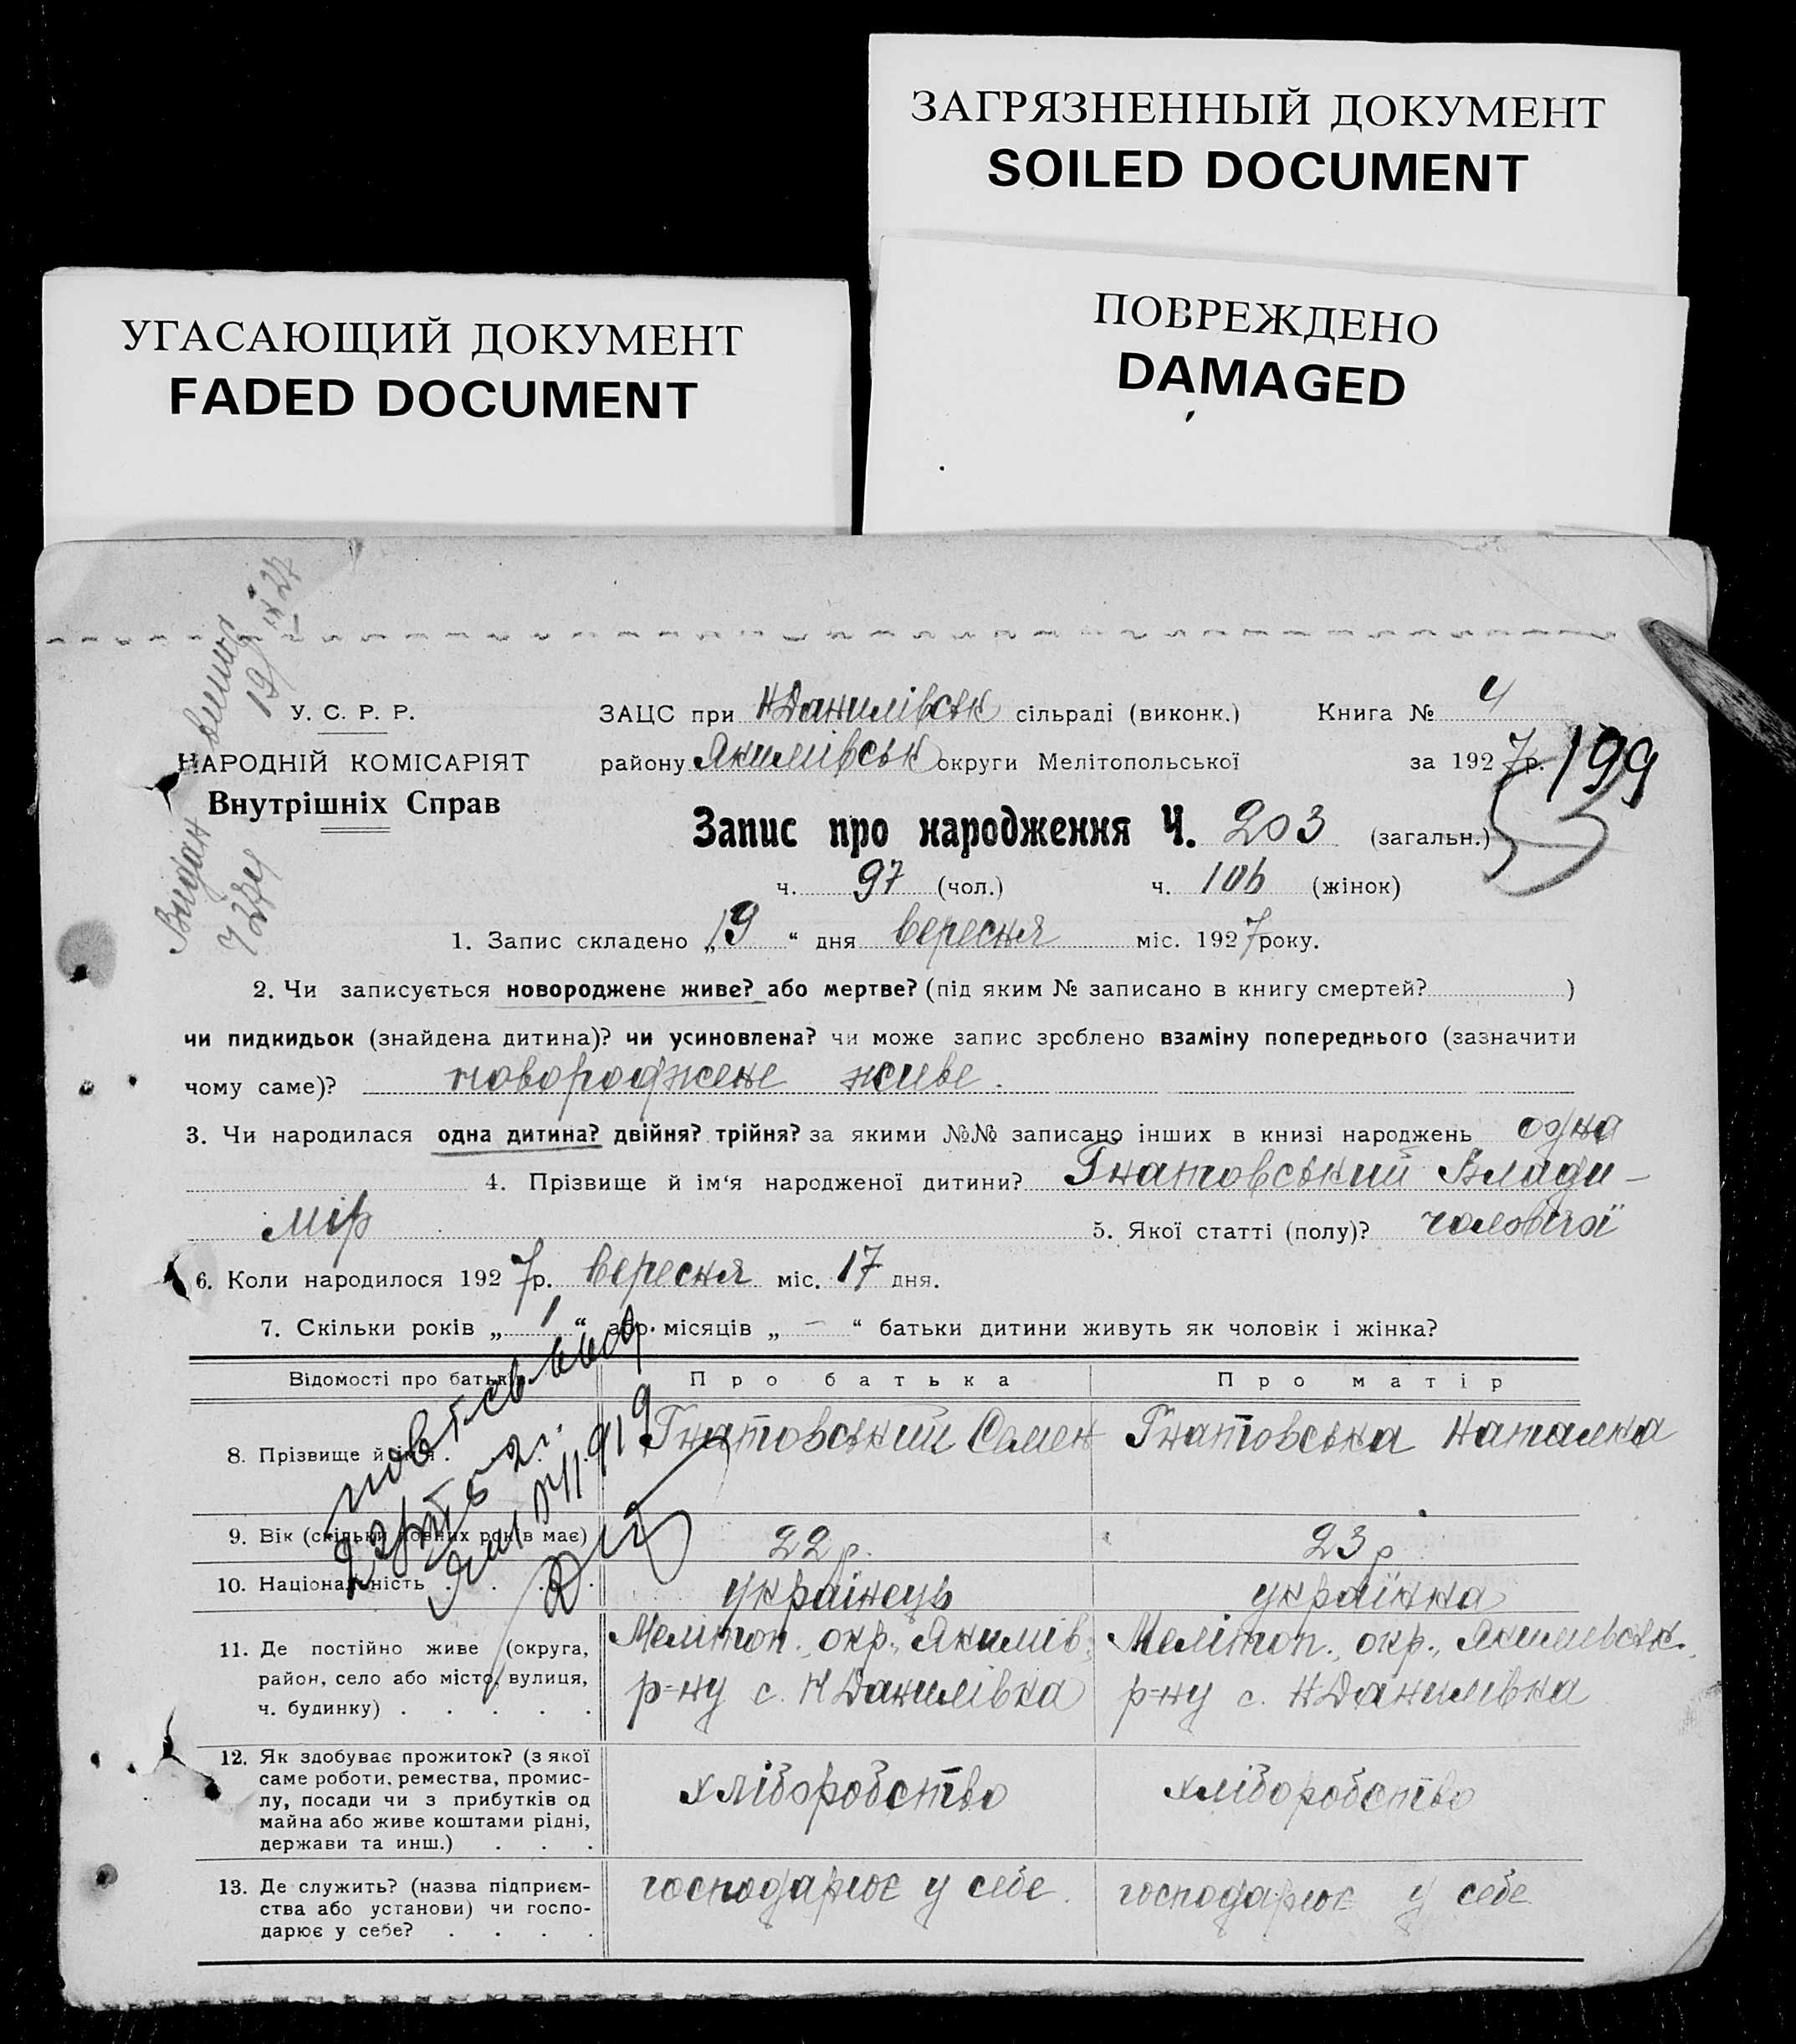 ЗАГРЯЗНЕННЫЙ ДОКУМЕНТ
SOILED DOCUMENT
ПОВРЕЖДЕНО
DAMAGED
УГАСАЮЩИЙ ДОКУМЕНТ
FADED DOCUMENT
Видан
19/IX 27
У. С. Р. Р.
НАРОДНІЙ КОМІСАРІЯТ
Внутрішніх Справ
ЗАЦС при НДанилівськ сільраді (виконк.) Книга № 4
району Якимівськ округи Мелітопольської за 1927р. 199
Запис про народження Ч. 203 (загальн.)
ч. 97 (чол.) ч. 106 (жінок)
1. Запис складено „19“ дня вересня міс. 1927 року.
2. Чи записується новороджене живе? або мертве? (під яким № записано в книгу смертей? )
чи пидкидьок (знайдена дитина)? чи усиновлена? чи може запис зроблено взаміну попереднього (зазначити
чому саме)? новороджене живе.
3. Чи народилася одна дитина? двійня? трійня? за якими №№ записано інших в книзі народжень одна
4. Прізвище й ім‘я народженої дитини? Гнатовський Влади-
мір 5. Якої статті (полу)? чоловічої
6. Коли народилося 1927р. вересня міс. 17 дня.
7. Скільки років „ 1 “ або місяців „ — “ батьки дитини живуть як чоловік і жінка?
Відомості про батьків Про батька Про матір
8. Прізвище й ім'я Гнатовський Семен Гнатовська Наталка
9. Вік (скільки повних років має) 22 р. 23 р
10. Національність українець українка
11. Де постійно живе (округа, район, село або місто, вулиця, ч. будинку)
Мелітоп. окр., Якимів. р-ну с. НДанилівка
Мелітоп. окр., Якимівськ. р-ну с. НДанилівка
12. Як здобуває прожиток? (з якої саме роботи, ремества, промислу, посади чи з прибутків од майна або живе коштами рідні, держави та инш.)
хліборобство хліборобство
13. Де служить? (назва підприємства або установи) чи господарює у себе?
господарює у себе. господарює у себе